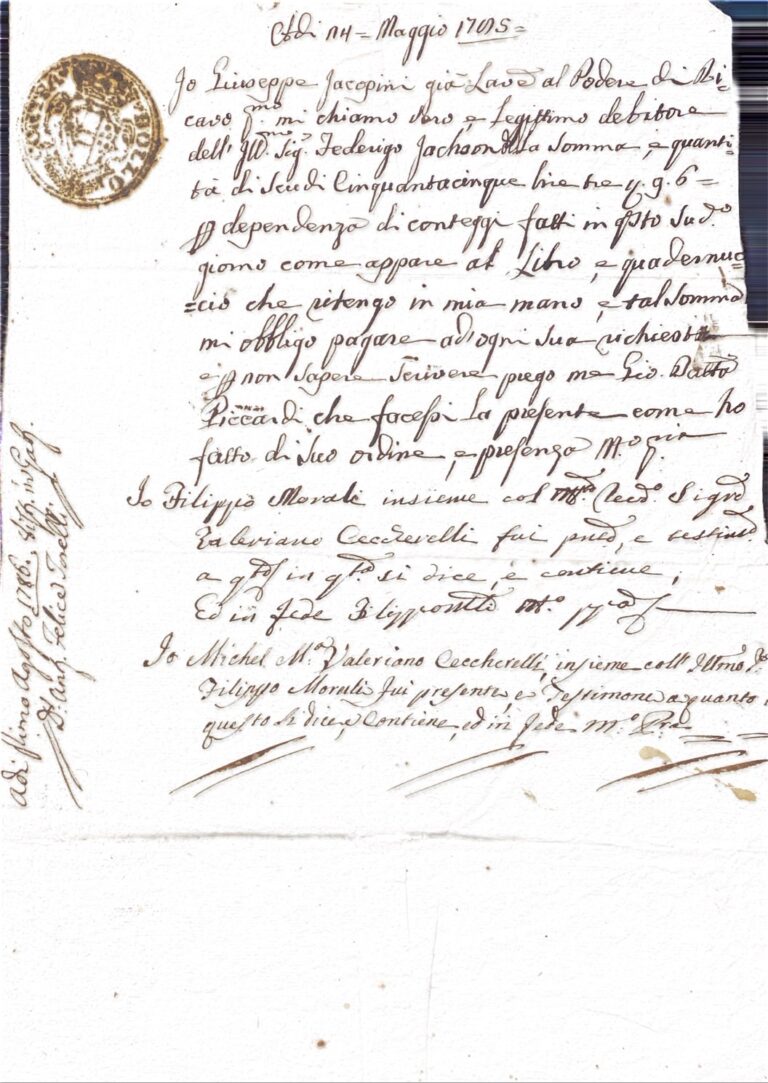 Adi 14 = Maggio 1785 =
Io Giuseppe Jacopini già Lavre al Podere di Ri-
cavo mi chiamo vero, e Legittimo debitore
dell' Illmo Sigre Federigo Jachson della Somma, e quanti-
tà di Scudi Cinquantacinque lire tre 9. 6 =
dependenza di conteggi fatti in qsto Sudo
giorno come appare al Libro, e quadernuc-
=cio che ritengo in mia mano, e tal Somma
mi obbligo pagare ad ogni Sua richiesta
e p non Sapere Scrivere prego me Gio. Batta
Piccardi che facessi La presente come ho
fatto di Suo ordine, e presenza Mo
Io Filippo Morali insieme col Sigre
Valeriano Ceccherelli fui pnte, e testimo
a qto in qta si dice, e contiene,
Ed in fede Filippo Mo
Io Michel Ma Valeriano Ceccherelli, insieme coll' Illmo
Filippo Morali fui presente, e Testimone a quanto in
questo si dice, e Contiene, ed in fede Mo Pra
Adi Primo Agosto 1786.
Felice Torelli
BOLLO